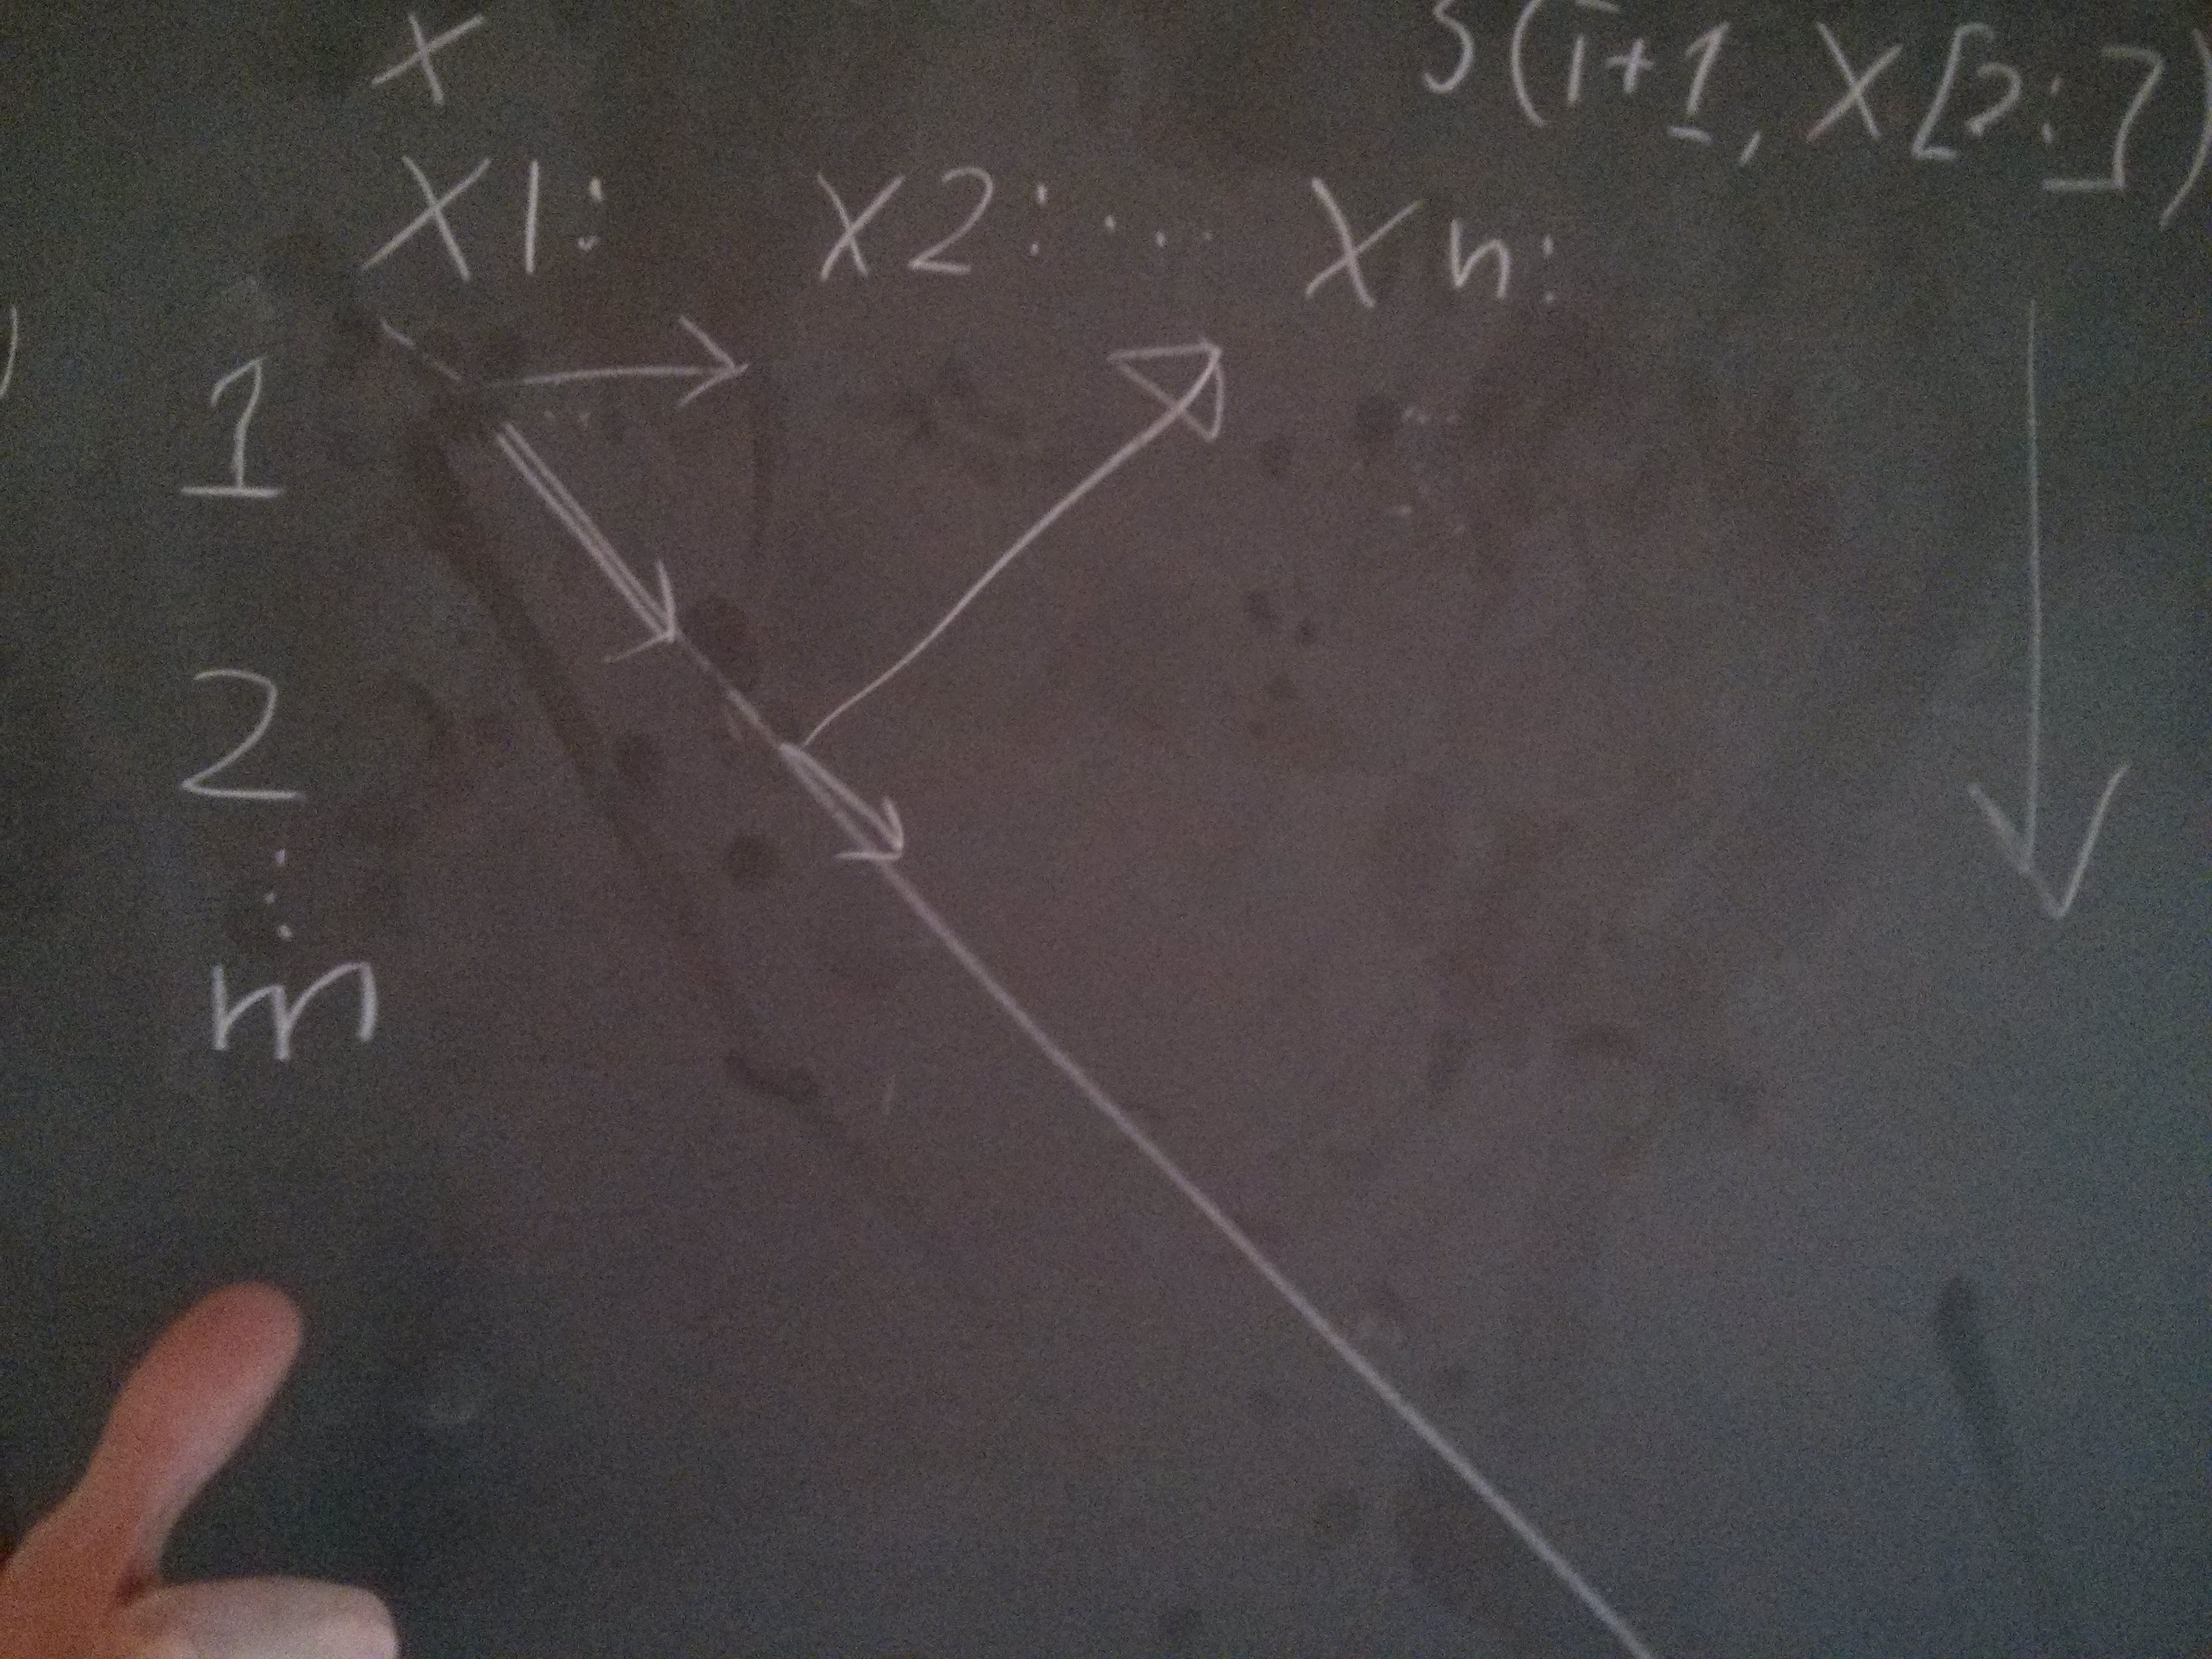 S(i+1, X[2:])
X
X1: X2: ... Xn:
1
2
⋮
m